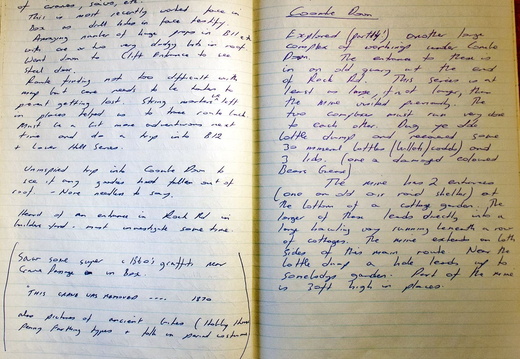 of cranes, saws, etc.
This is most recently worked face in
Box as drill holes in face testify.
Amazing number of huge props in B12 etc
with one or two very dodgy bits in roof.
Went down to Clift Entrance to see
steel door.
Route finding not too difficult with
map but care needs to be taken to
prevent getting lost. String markers left
in places helped us to trace route back.
Must be a bit more adventurous next
time and do a trip into B12
+ Lower Hill Series.
Uninspired trip into Coombe Down to
see if any gardens had fallen out of
roof - None needless to say.
Heard of an entrance in Rock Rd in
builders yard - must investigate some time.
Saw some super c1860's graffiti near
Crane Passage in Box.
"THIS CRANE WAS REMOVED .... 1870
also pictures of ancient bikes (Hobby Horse
Penny Farthing types + folk in period costume
Coombe Down
Explored (partly!) another large
complex of workings under Combe
Down. The entrance to these is
in an old quarry at the end
of Rock Rd. This series is at
least as large, if not larger, than
the mine visited previously. The
two complexes must run very close
to each other. Dug ye olde
bottle dump and recovered some
30 mineral bottles (bullets/codds) and
3 lids. (one a damaged coloured
Bears Grease)
The mine has 2 entrances
(one an old air raid shelter) at
the bottom of a cottage garden. The
larger of them leads directly into a
large haulage way running beneath a row
of cottages. The mine extends on both
sides of this main route. Near the
bottle dump a hole leads up to
somebodys garden. Part of the mine
is 30ft high in places.